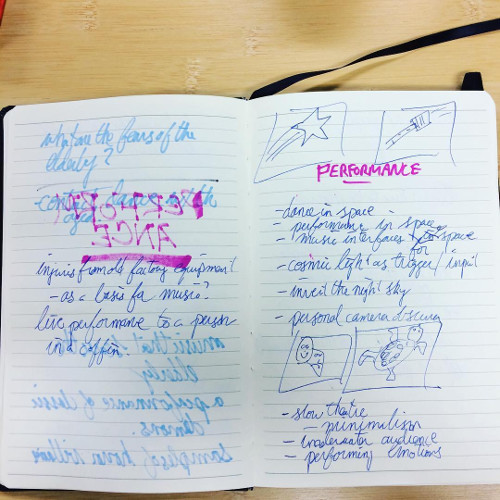 what are the fears of the
elderly?
contact dance with the
aged.
injuries from old factory equipment
- as a basis for music?
live performance to a person
in a coffin.
PERFORMANCE
- dance in space
- performance for space
- music interfaces for space
- cosmic light as trigger / input
- invert the night sky
- personal camera obscura
- slow theatre
- minimalism
- underwater audience
- performing emotions